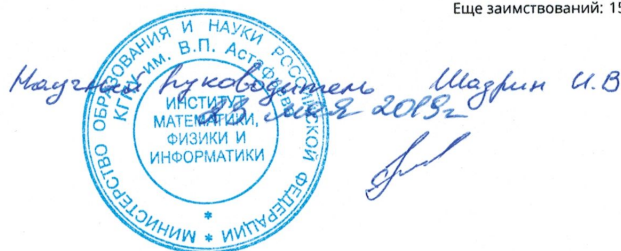 Еще заимствований: 15
Научный руководитель Шадрин И.В
23 мая 2019г
МИНИСТЕРСТВО ОБРАЗОВАНИЯ И НАУКИ РОССИЙСКОЙ ФЕДЕРАЦИИ
КГПУ им. В.П. Астафьева
ИНСТИТУТ
МАТЕМАТИКИ,
ФИЗИКИ И
ИНФОРМАТИКИ